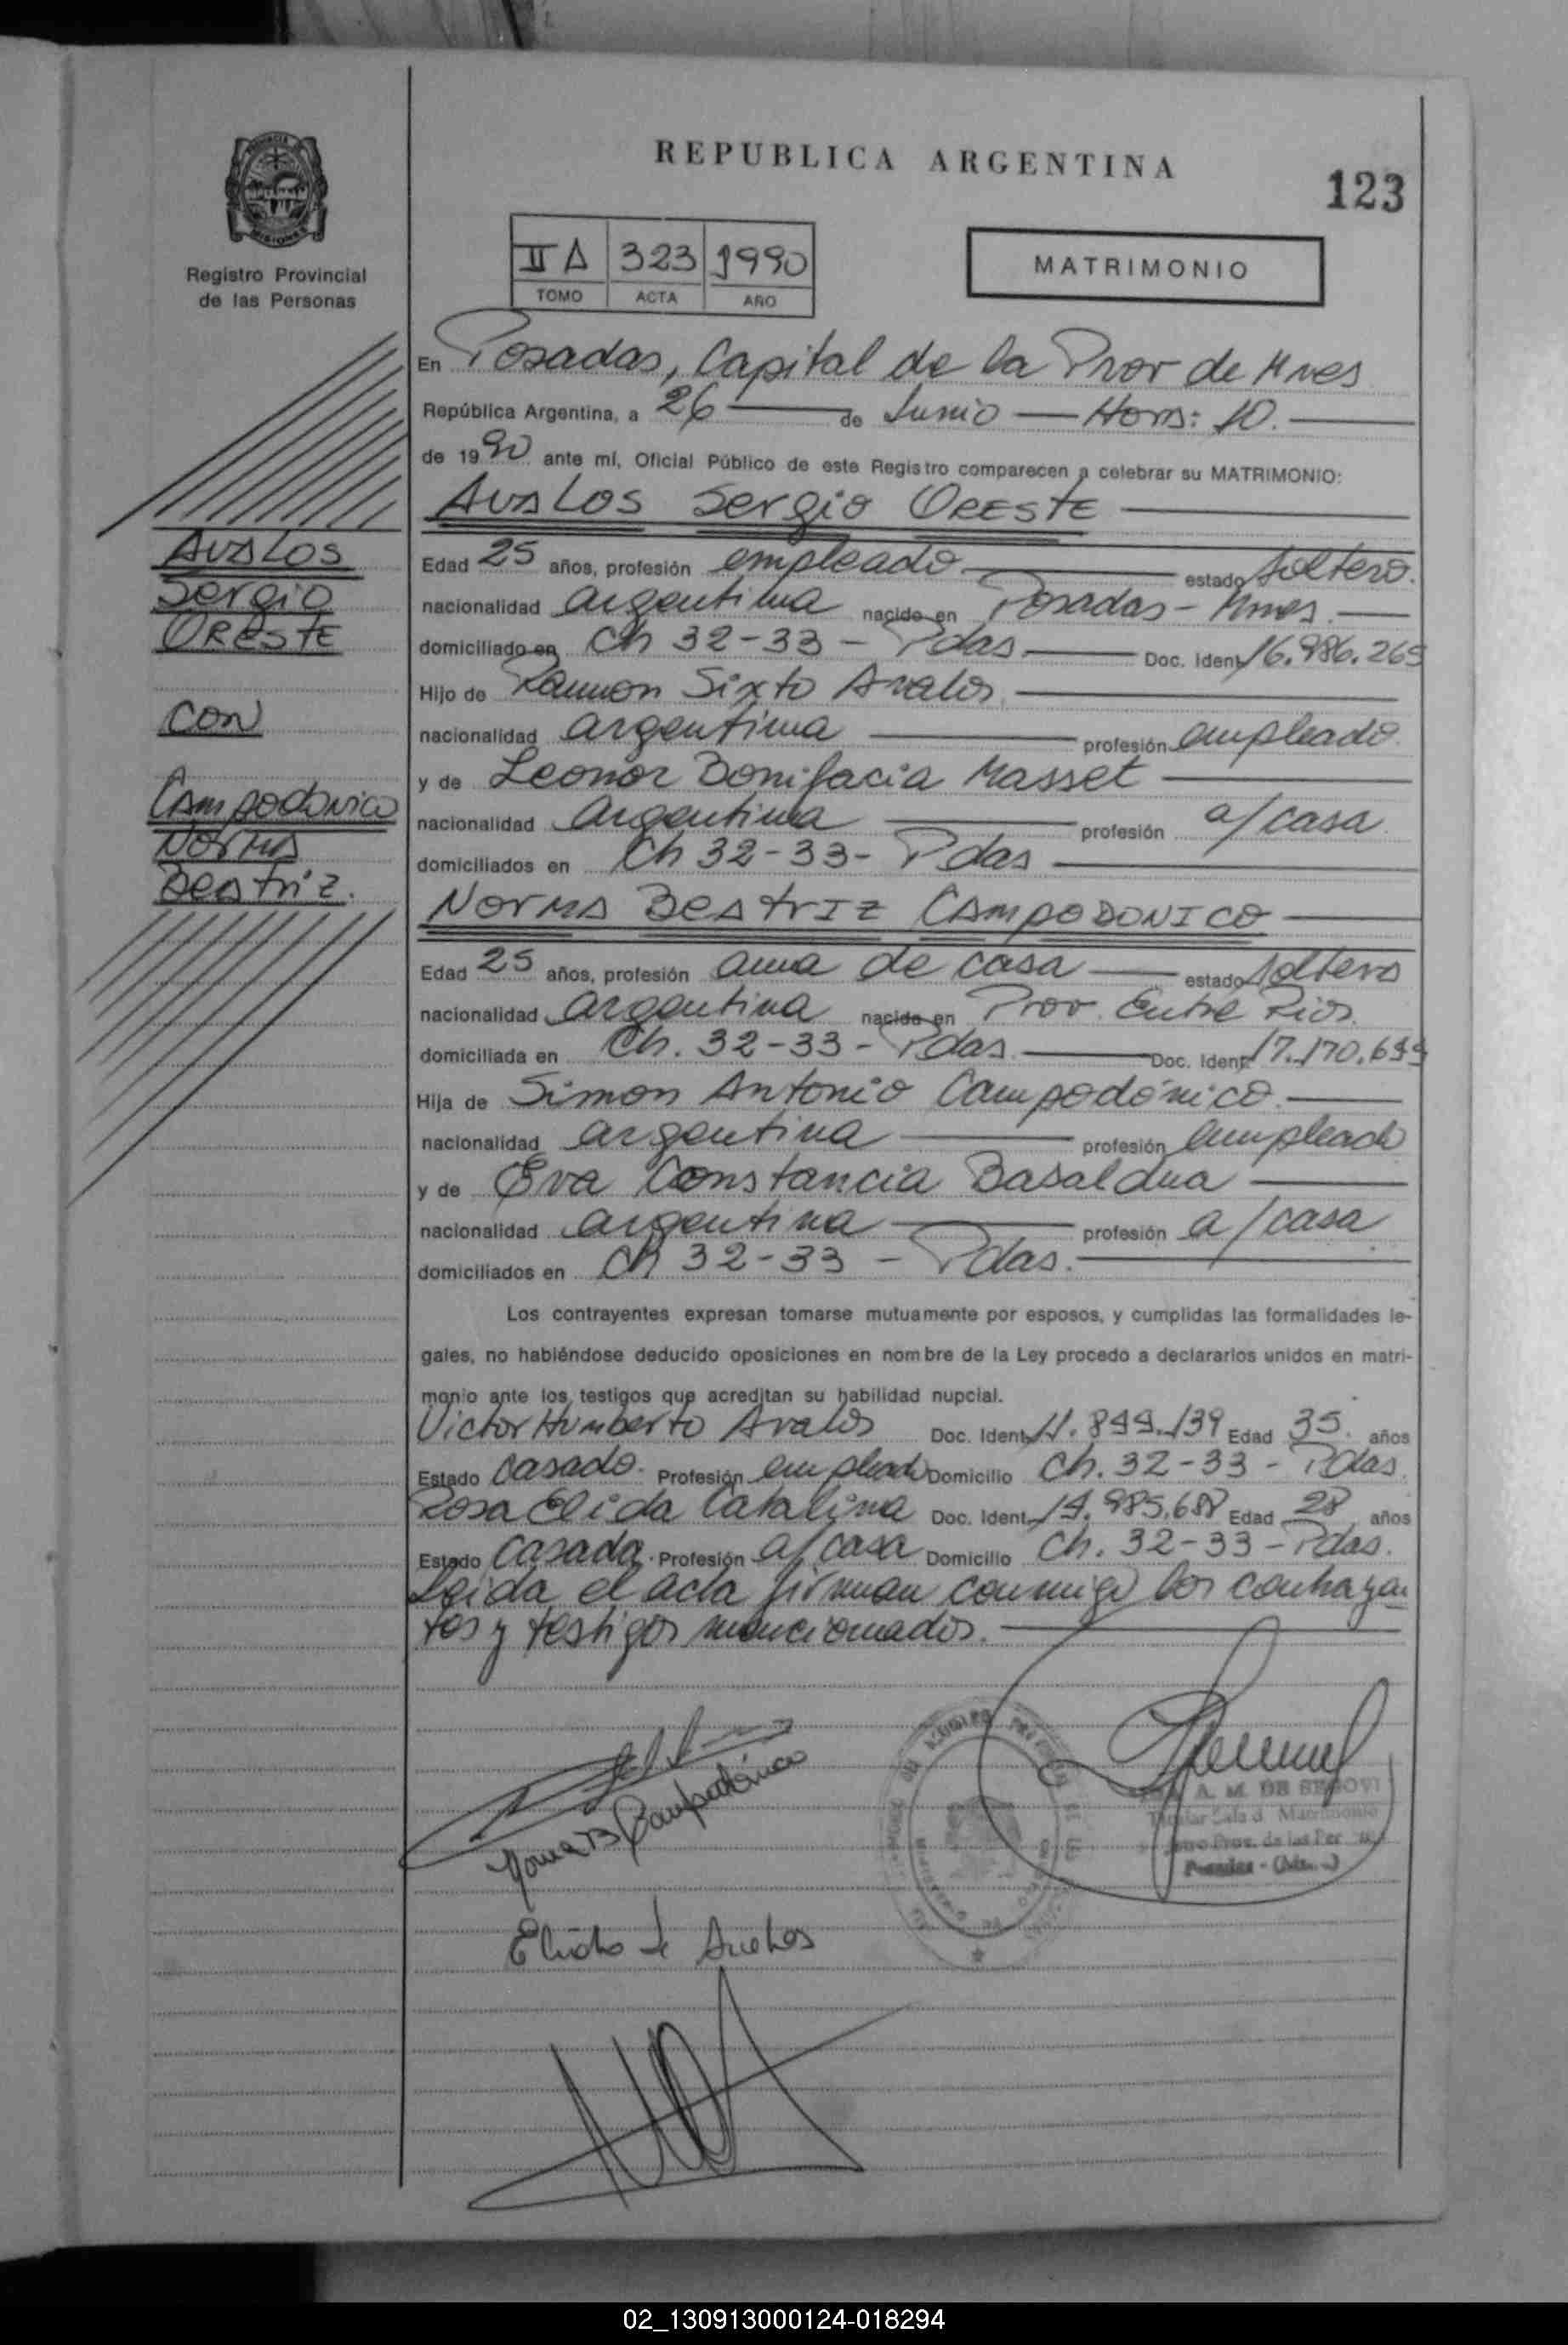 REPUBLICA ARGENTINA
123
Registro Provincial
de las Personas
II A 323 1990
TOMO ACTA AÑO
MATRIMONIO
En Posadas, Capital de la Prov de Mnes
República Argentina, a 26 de Junio Hora: 10.
de 1990 ante mí, Oficial Público de este Registro comparecen a celebrar su MATRIMONIO:
AVALOS Sergio ORESTE
AVALOS
Sergio
ORESTE
CON
CAMpodonico
NorMA
BeAtriz.
Edad 25 años, profesión empleado estado soltero.
nacionalidad argentina nacido en Posadas - Mnes.
domiciliado en Ch 32-33 - Pdas. Doc. Ident. 16.986.265
Hijo de Ramon Sixto Avalos
nacionalidad argentina profesión empleado.
y de Leonor Bonifacia Masset
nacionalidad argentina profesión a/casa
domiciliados en Ch 32-33- Pdas
NorMA BeAtrIz CAMpODONICO
Edad 25 años, profesión ama de casa estado soltera
nacionalidad argentina nacida en Prov. Entre Rios.
domiciliada en Ch. 32-33- Pdas. Doc. Ident. 17.170.699
Hija de Simon Antonio Campodónico.
nacionalidad argentina profesión empleado
y de Eva Constancia Basaldua
nacionalidad argentina profesión a/casa
domiciliados en Ch 32-33 - Pdas.
Los contrayentes expresan tomarse mutuamente por esposos, y cumplidas las formalidades le-
gales, no habiéndose deducido oposiciones en nombre de la Ley procedo a declararlos unidos en matri-
monio ante los testigos que acreditan su habilidad nupcial.
Victor Humberto Avalos Doc. Ident. 11.899.139 Edad 35. años
Estado Casado. Profesión empleado Domicilio Ch. 32-33 - Pdas.
Rosa Elida Catalina Doc. Ident. 14.985.688 Edad 28 años
Estado Casada. Profesión a/casa Domicilio Ch. 32-33 - Pdas.
Leida el acta firman conmigo los contrayen
tes y testigos mencionados.
Norma B Campodónico
A. M. DE SEGOVI
Matrimonio
de las Per
Posadas - (Mnes.)
02_130913000124-018294